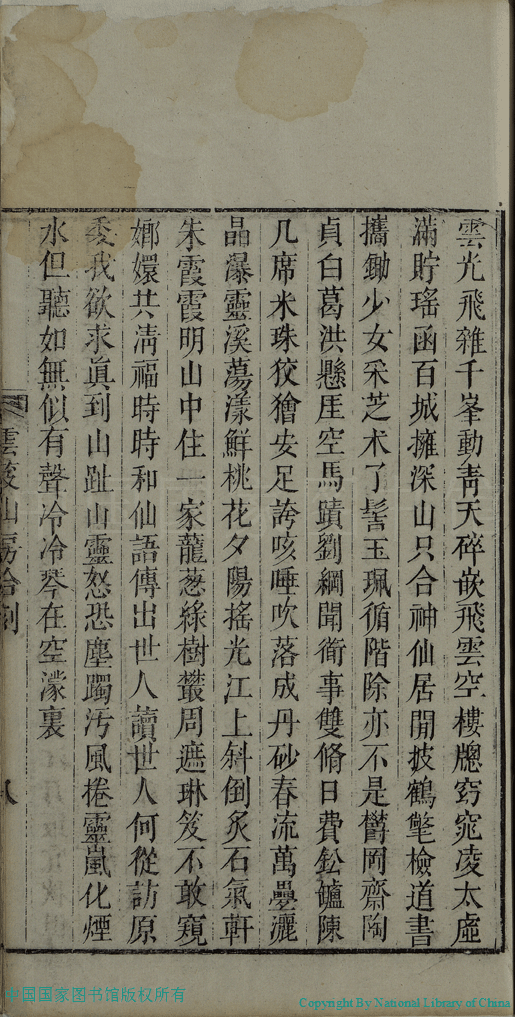 雲光飛雜千峯動靑天碎嵌飛雲空樓牕窈窕凌太虛
滿貯瑤函百城擁深山只合神仙居開披鶴氅檢道書
攜鋤少女采芝朮了髻玉珮循階除亦不是欝岡齋陶
貞白葛洪懸厓空馬蹟劉綱聞衕事雙脩日費鈆罏陳
几席米珠狡獪安足誇咳唾吹落成丹砂春流萬疊灑
晶瀑靈溪蕩漾鮮桃花夕陽搖光江上斜倒炙石氣軒
朱霞霞明山中住一家龍葱綠樹叢周遮琳笈不敢窺
嫏嬛共淸福時時和仙語傳出世人讀世人何從訪原
委我欲求眞到山趾山靈怒恐塵躅汚風捲靈嵐化煙
水但聽如無似有聲冷冷琴在空濛裏
山房合刻
八
中国国家图书馆版权所有
Copyright By National Library of China